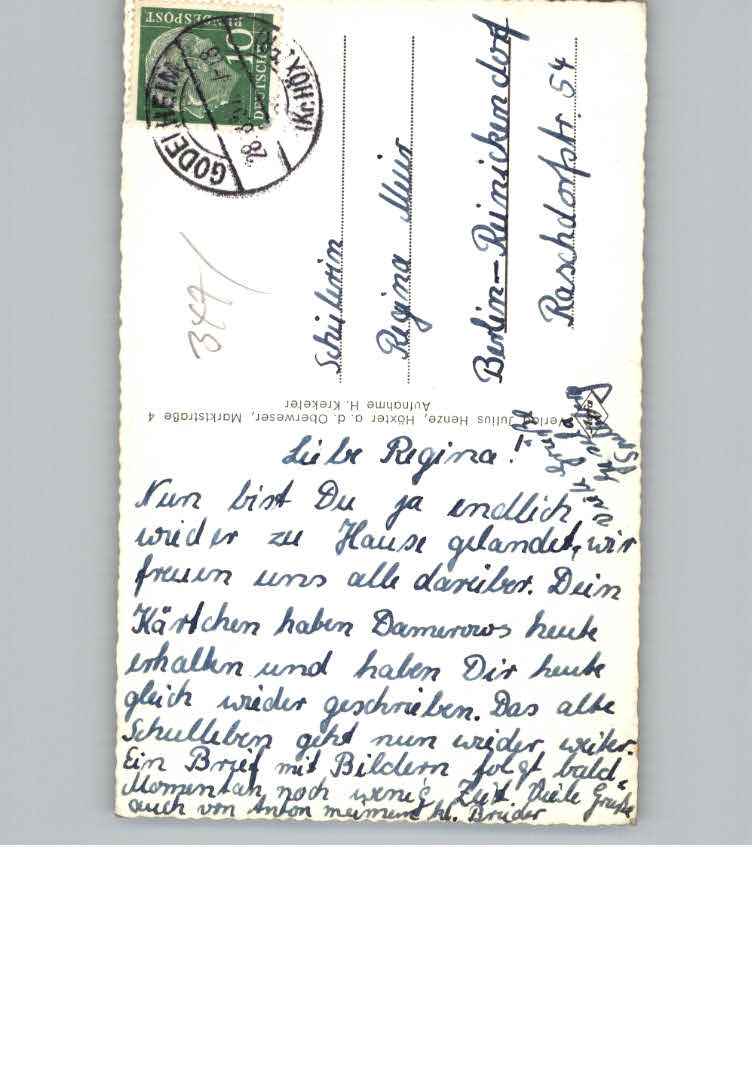 DEUTSCHE
BUNDESPOST
10
GODELHEIM
(Kr. HÖX
28
344
Schülerin
Regina
Berlin-Reinickendorf
Raschdorfstr. 54
Verlag Julius Henze, Höxter a. d. Oberweser, Marktstraße 4
Aufnahme H. Krekeler
Liebe Regina!
Nun bist Du ja endlich
wieder zu Hause gelandet, wir
freuen uns alle darüber. Dein
Kärtchen haben Damerows heute
erhalten und haben Dir heute
gleich wieder geschrieben. Das alte
Schulleben geht nun wieder weiter.
Ein Brief mit Bildern folgt bald.
Momentan noch wenig Zeit. Viele Grüße
auch von Anton meinem kl. Bruder